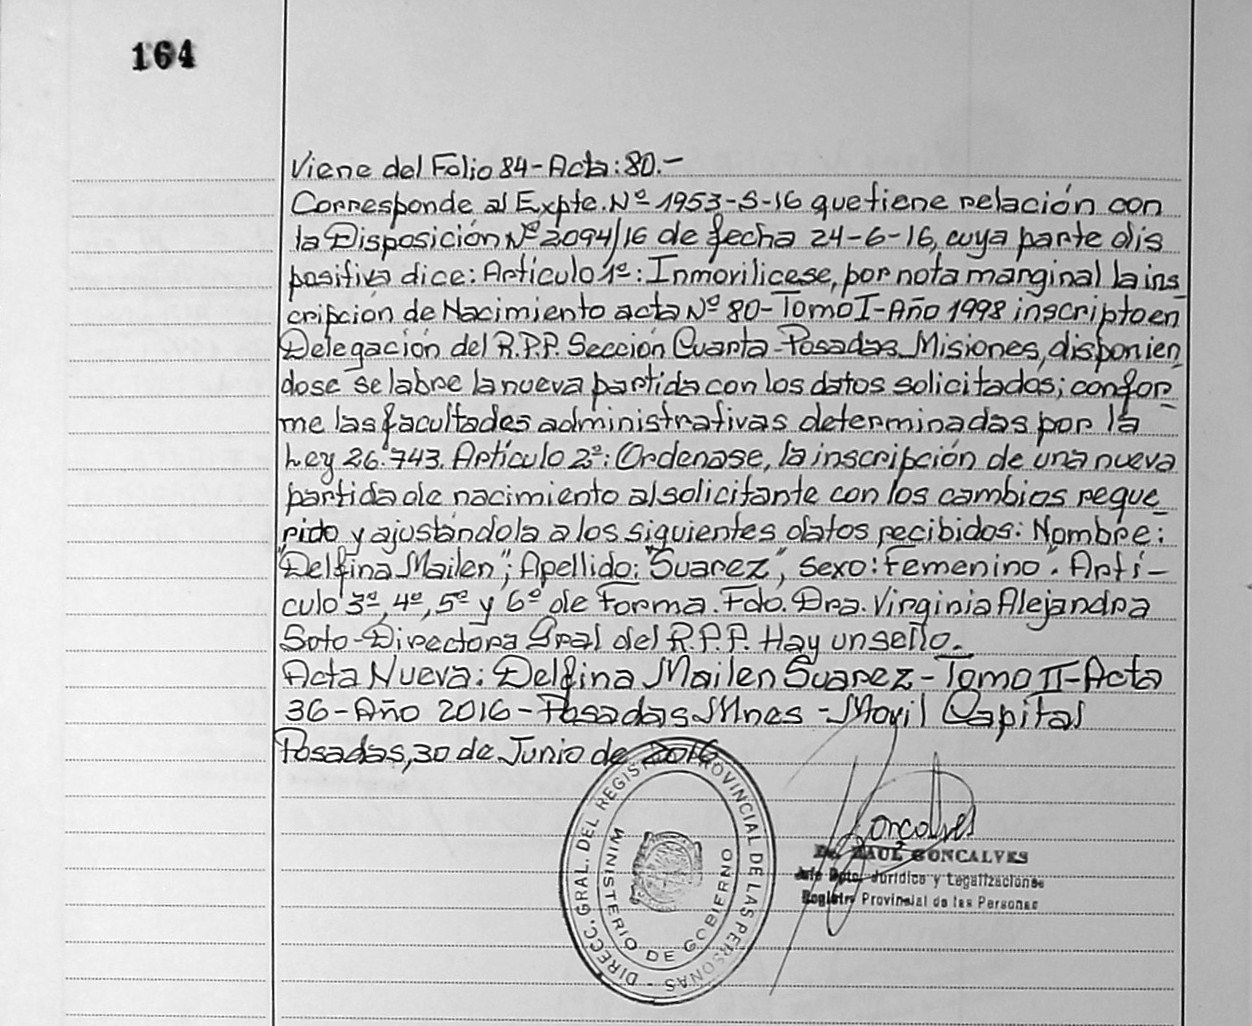 164
Viene del Folio 84-Acta: 80.-
Corresponde al Expte. Nº 1953-S-16 que tiene relación con
la Disposición Nº 2094/16 de fecha 24-6-16, cuya parte dis
positiva dice: Artículo 1º: Inmovilicese, por nota marginal la ins
cripción de Nacimiento acta Nº 80-Tomo I-Año 1998 inscripto en
Delegación del R.P.P. Sección Cuarta-Posadas Misiones, disponien
dose se labre la nueva partida con los datos solicitados; confor
me las facultades administrativas determinadas por la
Ley 26.743. Artículo 2º: Ordenase, la inscripción de una nueva
partida de nacimiento al solicitante con los cambios reque
rido y ajustándola a los siguientes datos recibidos: Nombre:
"Delfina Mailen"; Apellido: "Suarez", sexo: Femenino. Artí-
culo 3º, 4º, 5º y 6º de Forma. Fdo. Dra. Virginia Alejandra
Soto-Directora Gral del R.P.P. Hay un sello.
Acta Nueva: Delfina Mailen Suarez-Tomo II-Acta
36-Año 2016-Posadas Mnes-Movil Capital
Posadas, 30 de Junio de 2016
DIRECC. GRAL. DEL REGISTRO PROVINCIAL DE LAS PERSONAS -
MINISTERIO DE GOBIERNO
Goncalves
Dr. RAUL GONCALVES
Jefe Dpto. Jurídico y Legalizaciones
Registro Provincial de las Personas